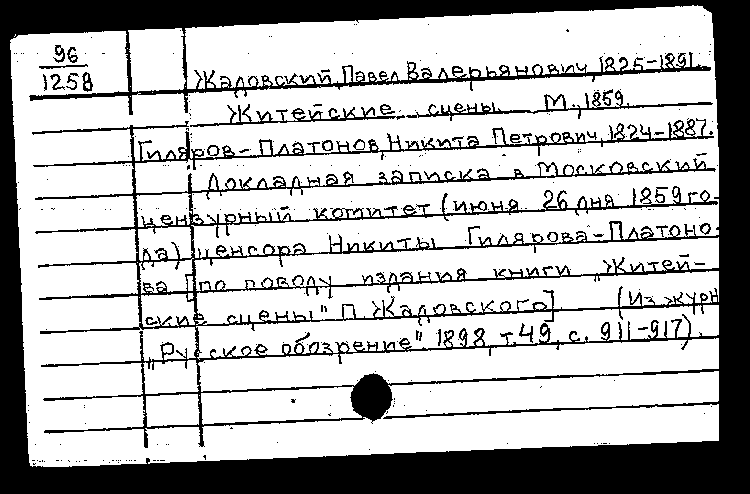 96
1258
Жадовский, Павел Валерьянович, 1825-1891.
Житейские сцены М., 1859.
Гиляров-Платонов, Никита Петрович, 1824-1887.
Докладная записка в Московский
цензурный комитет (июня 26 дня 1859 го-
да) ценсора Никиты Гилярова-Платоно-
ва [по поводу издания книги „Житей-
ские сцены" П. Жадовского] (Из журн
„Русское обозрение". 1898, т.49, с. 911-917).